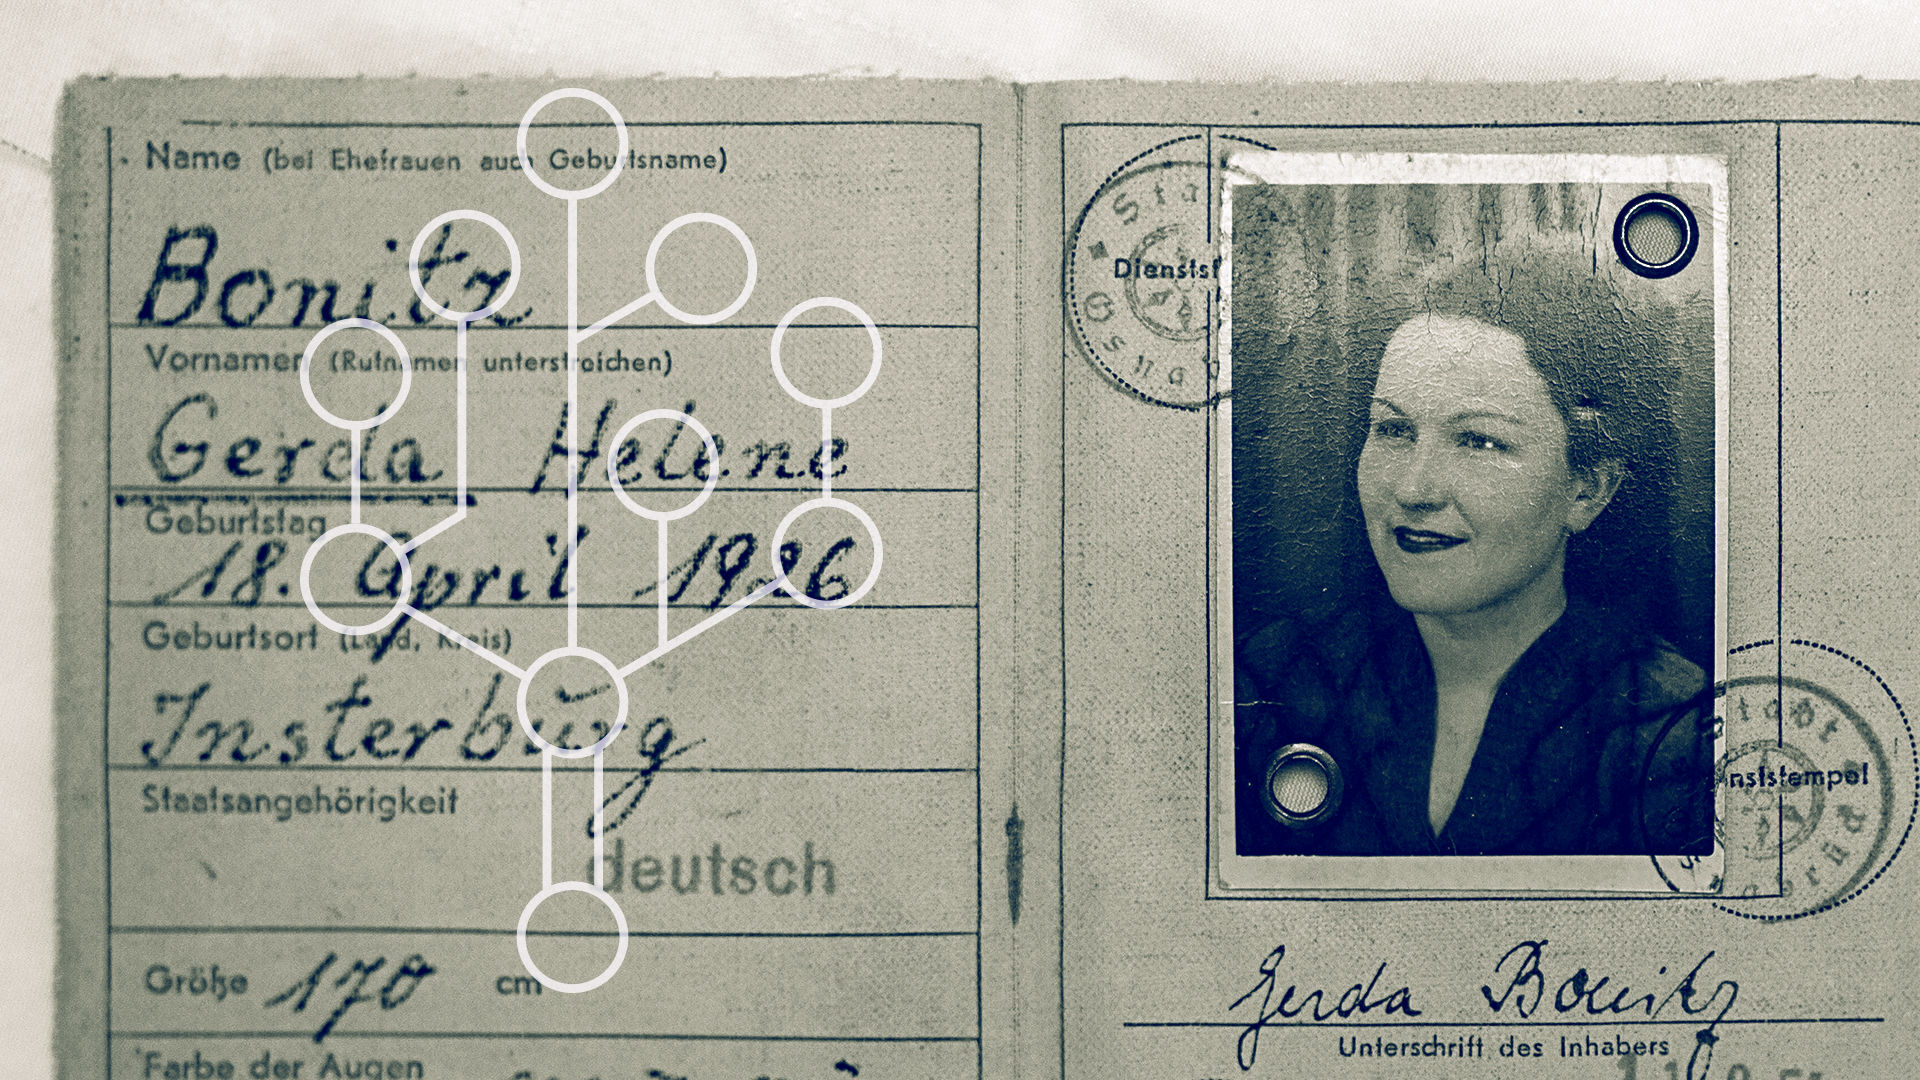 Name (bei Ehefrauen auch Geburtsname)
Bonitz
Vornamen (Rufnamen unterstreichen)
Gerda Helene
Geburtstag
18. April 1926
Geburtsort (Land, Kreis)
Insterburg
Staatsangehörigkeit
deutsch
Größe 170 cm
Farbe der Augen
Sta
Diensts
Osnab
Stadt
nststempel
snabrück
Gerda Bonitz
Unterschrift des Inhabers